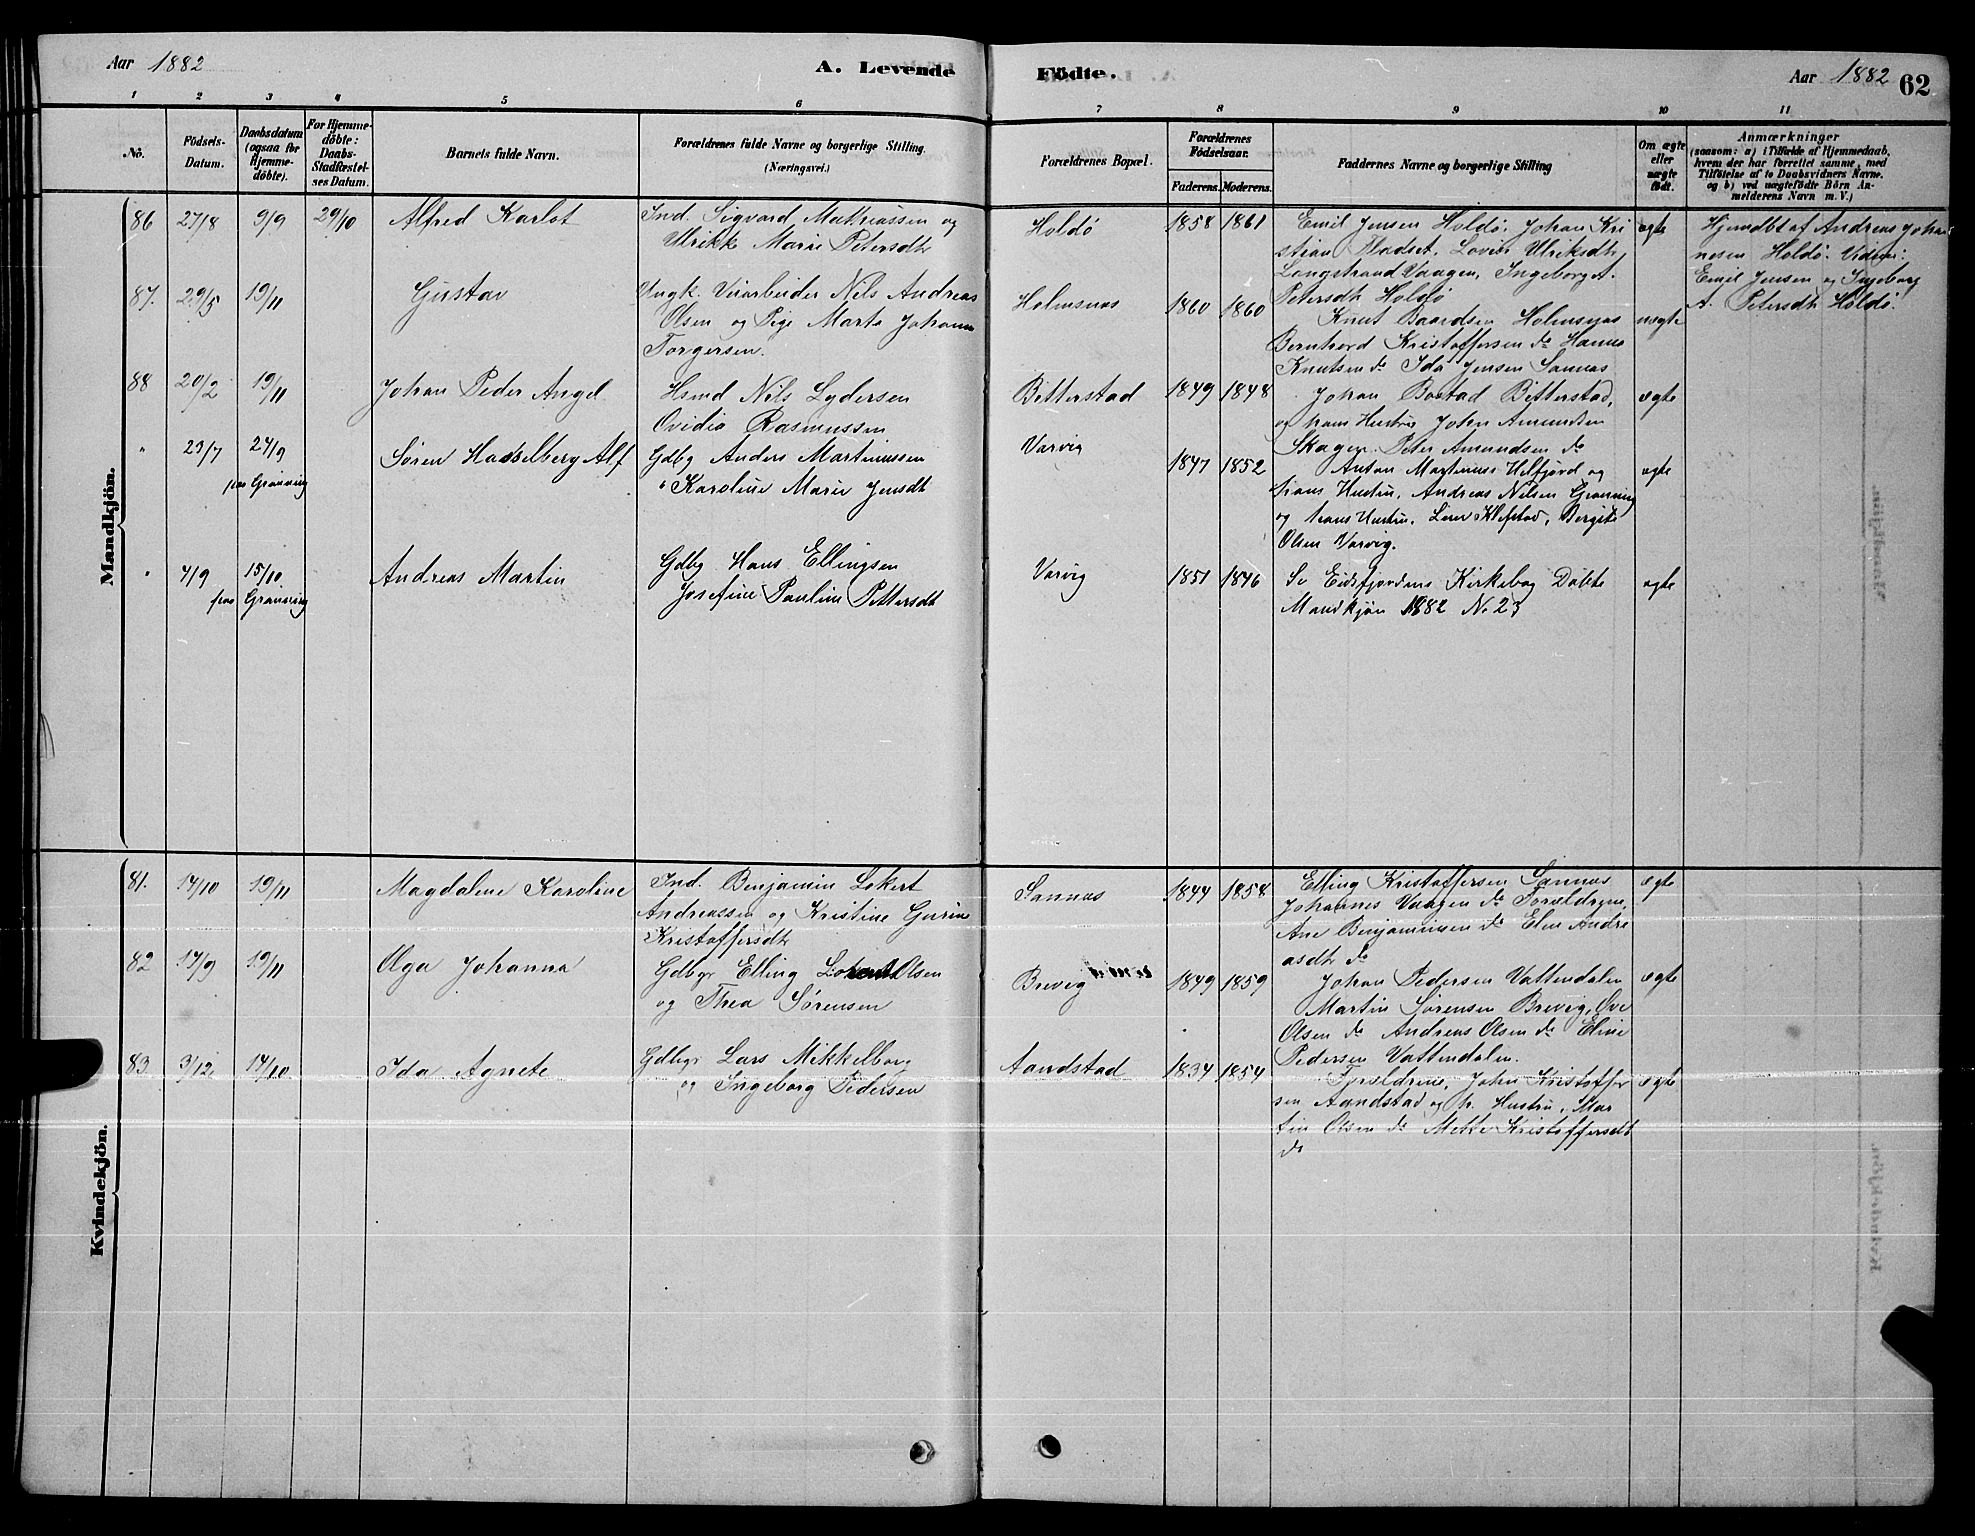 Aar 1882
A. Levende
Födte.
Aar 1882
62
1 2 3 4 5 6 7 8 9 10 11
No.
Födsels-
Datum.
Daabsdatum
(ogsaa for
Hjemme-
döbte).
For Hjemme-
döbte:
Daabs-
Stadfæstel-
ses Datum.
Barnets fulde Navn.
Forældrenes fulde Navne og borgerlige Stilling.
(Næringsvei.)
Forældrenes Bopæl.
Forældrenes
Födselsaar.
Faderens.
Moderens.
Faddernes Navne og borgerlige Stilling
Om ægte
eller
uægte
födt.
Anmærkninger
(saasom: a) i Tilfælde af Hjemmedaab,
hvem der har forrettet samme, med
Tilföielse af to Daabsvidners Navne.
og b) ved uægtefödte Börn An-
melderens Navn m.V.)
Mandkjön.
86 27/8 9/9 29/10 Alfred Karlot
Ind. Sigvard Mathiassen og
Ulrikke Marie Petersdtr
Holdö 1858 1861
Emil Jensen Holdö. Johan Kri
stian Fladset. Lovise Ulriksdtr
Langstrand Vaagen, Ingeborg A.
Petersdtr Holdö
ægte
Hjemdbt af Andreas Johan
nesen Holdö. Vidner:
Emil Jensen og Ingeborg
A. Petersdtr Holdö.
87. 29/5 19/11 Gustav
Ungk. Veiarbeider Nils Andreas
Olsen og Pige Marta Johanna
Torgersen.
Holmsnes 1860 1860
Knut Baardsen Holmsnes
Bernhard Kristoffersen do Hanna
Knutsen do Ida Jensen Sannes
uægte
88 20/2 19/11 Johan Peder Angel
Hsmd Nils Lydersen
Ovidia Rasmussen
Bitterstad 1849 1848
Johan Bostad Bitterstad,
og hans Hustru John Amundsen
Skagen. Peter Amundsen do
ægte
" 23/7 24/9
paa Grønning
Søren Hasselberg Alf
Gdbg Anders Martinussen
" Karoline Marie Jensdtr
Varvig 1847 1852
Anton Martinus Helfjord og
hans Hustru. Andreas Nilsen Grønning
og hans Hustru. Klefstad, Bergite
Olsen Varvig.
ægte
" 4/9 15/10
paa Grønning
Andreas Martin
Gdbg. Hans Ellingsen
Josefine Pauline Pettersdtr
Varvig 1851 1846
Se Eidsfjordens Kirkebog Døbte
Mandkjøn 1882 No 23
ægte
Kvindekjön.
81. 14/10 19/11 Magdalene Karoline
Ind. Benjamin Lekert
Andreassen og Kristine Gurine
Kristoffersdtr
Sannes 1844 1858
Elling Kristoffersen Sannes
Johannes Vaagen do Forældrene,
Ane Benjaminsen do Elen Andre
asdtr do
ægte
82 17/9 19/11 Olga Johanna
Gdbgr Elling Olsen
og Thea Sørensen
Brevig 1849 1859
Johan Pedersen Vattendalen
Martin Sørensen Brevig, Ove
Olsen do Andreas Olsen do Eline
Pedersen Vattendalen.
ægte
83 3/12 14/10 Ida Agnete
Gdbgr Lars Mikkelborg
og Ingeborg Pedersen
Aandstad 1834 1854
Forældrene, John Kristoffer
sen Aandstad og h. Hustru. Mar
tin Olsen do Mette Kristoffersdtr
do
ægte